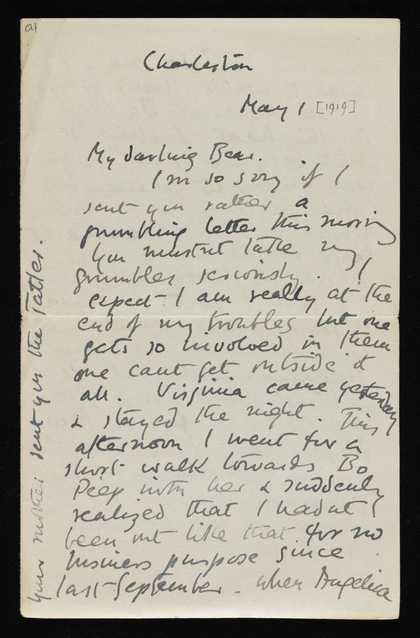 a1
Charleston
May 1 [1919]
My darling Bear.
I'm so sorry if I
sent you rather a
grumbling letter this morning
You mustnt take my
grumbles seriously. I
expect I am really at the
end of my troubles but one
gets so involved in them
one cant get outside it
all. Virginia came yesterday
& stayed the night. This
afternoon I went for a
short walk towards Bo
Peep with her & suddenly
realized that I hadnt
been out like that for no
business purpose since
last September. When Angelica
Your mother sent you the Tatler.